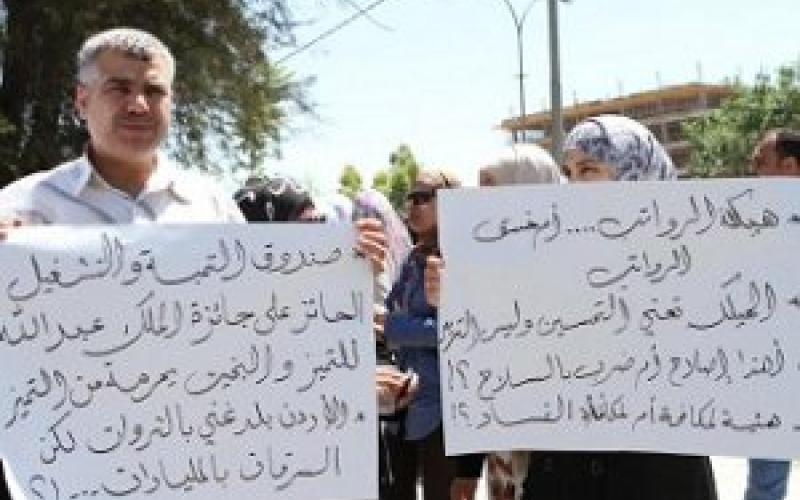 صندوق التنمية والتشغيل
الحائز على جائزة الملك عبد الله
للتميز والبخيت يحرمه من التميز
الأردن بلد غني بالثروات لكن
السرقات بالمليارات....!؟
هيكلة الرواتب.... أم خسى
الرواتب
الهيكلة تعني التحسين وليس
أهذا إصلاح أم ضرب بالسلاح ؟!
هيئة لمكافحة أم لمكافأة الفساد ؟!